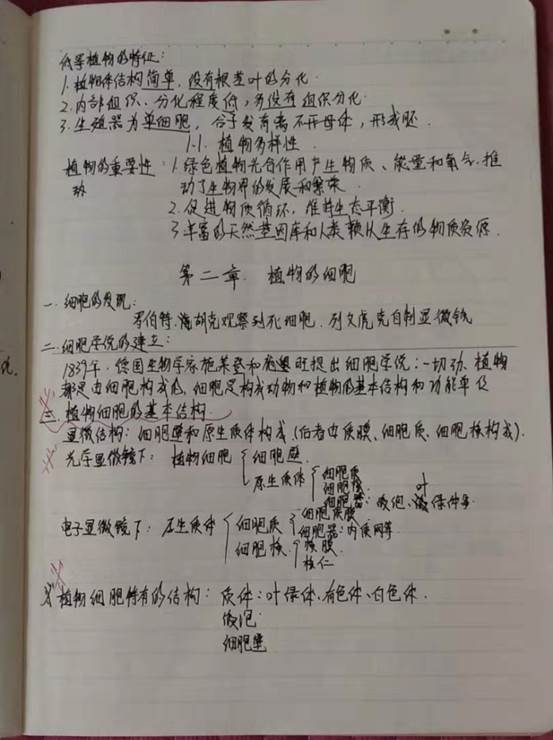 低等植物的特征:
1.植物体结构简单,没有根茎叶的分化.
2.内部组织、分化程度低,多没有组织分化.
3.生殖器为单细胞,合子发育离不开母体,形成胚.
1.1. 植物多样性.
植物的重要性: 1.绿色植物光合作用产生物质、能量和氧气.推
动了生物界的发展和繁荣.
2.促进物质循环,维持生态平衡.
3.丰富的天然基因库和人类赖以生存的物质资源.
第二章. 植物的细胞
一.细胞的发现:
罗伯特.海胡克观察到死细胞.列文虎克自制显微镜
二.细胞学说的建立:
1839年.德国生物学家施莱登和施旺提出细胞学说:一切动、植物
都是由细胞构成的,细胞是构成动物和植物的基本结构和功能单位
三.植物细胞的基本结构.
显微结构: 细胞壁和原生质体构成(后者由质膜、细胞质、细胞核构成).
光学显微镜下: 植物细胞 细胞壁.
原生质体 细胞质
细胞核 叶
细胞器: 液泡、绿体等
电子显微镜下: 原生质体 细胞质 细胞质膜
细胞器:内质网等
细胞核 核膜
核仁
植物细胞特有的结构: 质体:叶绿体.有色体、白色体.
液泡
细胞壁